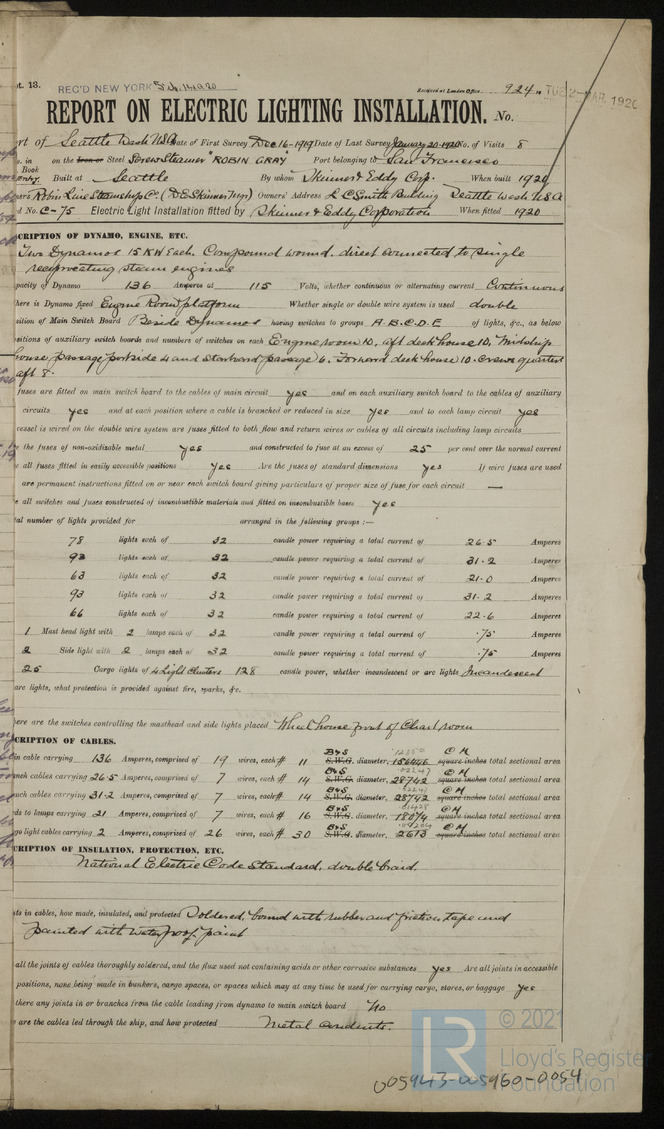 pt. 13. REC'D NEW YORK Feb. 14 1920 Received at London Office 924 TUE 2 MAR. 1920
REPORT ON ELECTRIC LIGHTING INSTALLATION. No.
rt of Seattle Wash USA Date of First Survey Dec 16-1919 Date of Last Survey January 20-1920 No. of Visits 8
o. in on the Iron or Steel Screw Steamer "ROBIN GRAY" Port belonging to San Francisco
Book Built at Seattle By whom Skinner & Eddy Corp. When built 1920
ners Robin Line Steamship Co. (D.E. Skinner Mgr) Owners' Address L C Smith Building Seattle Wash USA
d No. C-75 Electric Light Installation fitted by Skinner & Eddy Corporation When fitted 1920
CRIPTION OF DYNAMO, ENGINE, ETC.
Two Dynamos 15 KW Each. Compound wound. direct connected to single
reciprocating steam engines
pacity of Dynamo 136 Amperes at 115 Volts, whether continuous or alternating current Continuous
here is Dynamo fixed Engine Room platform Whether single or double wire system is used double
sition of Main Switch Board Beside Dynamos having switches to groups A.B.C.D.E of lights, &c., as below
sitions of auxiliary switch boards and numbers of switches on each Engine room 10, aft deck house 10, Midship
house passage portside 4 and starboard passage 6. Forward deck house 10. Crews quarters
aft 8.
fuses are fitted on main switch board to the cables of main circuit yes and on each auxiliary switch board to the cables of auxiliary
circuits yes and at each position where a cable is branched or reduced in size yes and to each lamp circuit yes
vessel is wired on the double wire system are fuses fitted to both flow and return wires or cables of all circuits including lamp circuits
the fuses of non-oxidizable metal yes and constructed to fuse at an excess of 25 per cent over the normal current
e all fuses fitted in easily accessible positions yes Are the fuses of standard dimensions yes If wire fuses are used
are permanent instructions fitted on or near each switch board giving particulars of proper size of fuse for each circuit —
e all switches and fuses constructed of incombustible materials and fitted on incombustible bases yes
tal number of lights provided for arranged in the following groups :—
78 lights each of 32 candle power requiring a total current of 26.5 Amperes
93 lights each of 32 candle power requiring a total current of 31.2 Amperes
63 lights each of 32 candle power requiring a total current of 21.0 Amperes
93 lights each of 32 candle power requiring a total current of 31.2 Amperes
66 lights each of 32 candle power requiring a total current of 22.6 Amperes
1 Mast head light with 2 lamps each of 32 candle power requiring a total current of .75 Amperes
2 Side light with 2 lamps each of 32 candle power requiring a total current of .75 Amperes
25 Cargo lights of 4 Light Clusters 128 candle power, whether incandescent or arc lights Incandescent
arc lights, what protection is provided against fire, sparks, &c.
here are the switches controlling the masthead and side lights placed Wheel house front of Chart room
CRIPTION OF CABLES.
in cable carrying 136 Amperes, comprised of 19 wires, each # 11 B&S S.W.G. diameter, 156446 CM square inches total sectional area
anch cables carrying 26.5 Amperes, comprised of 7 wires, each # 14 B&S S.W.G. diameter, 28742 CM square inches total sectional area
nch cables carrying 31.2 Amperes, comprised of 7 wires, each # 14 B&S S.W.G. diameter, 28742 CM square inches total sectional area
ds to lamps carrying 21 Amperes, comprised of 7 wires, each # 16 B&S S.W.G. diameter, 18074 CM square inches total sectional area
go light cables carrying 2 Amperes, comprised of 26 wires, each # 30 B&S S.W.G. diameter, 2613 CM square inches total sectional area
CRIPTION OF INSULATION, PROTECTION, ETC.
National Electric Code Standard, double braid.
ts in cables, how made, insulated, and protected Soldered, bound with rubber and friction tape and
painted with waterproof paint
all the joints of cables thoroughly soldered, and the flux used not containing acids or other corrosive substances yes Are all joints in accessible
positions, none being made in bunkers, cargo spaces, or spaces which may at any time be used for carrying cargo, stores, or baggage yes
there any joints in or branches from the cable leading from dynamo to main switch board No
w are the cables led through the ship, and how protected Metal conduits.
LR © 2021
Lloyd's Register
Foundation
005943-005960-0054